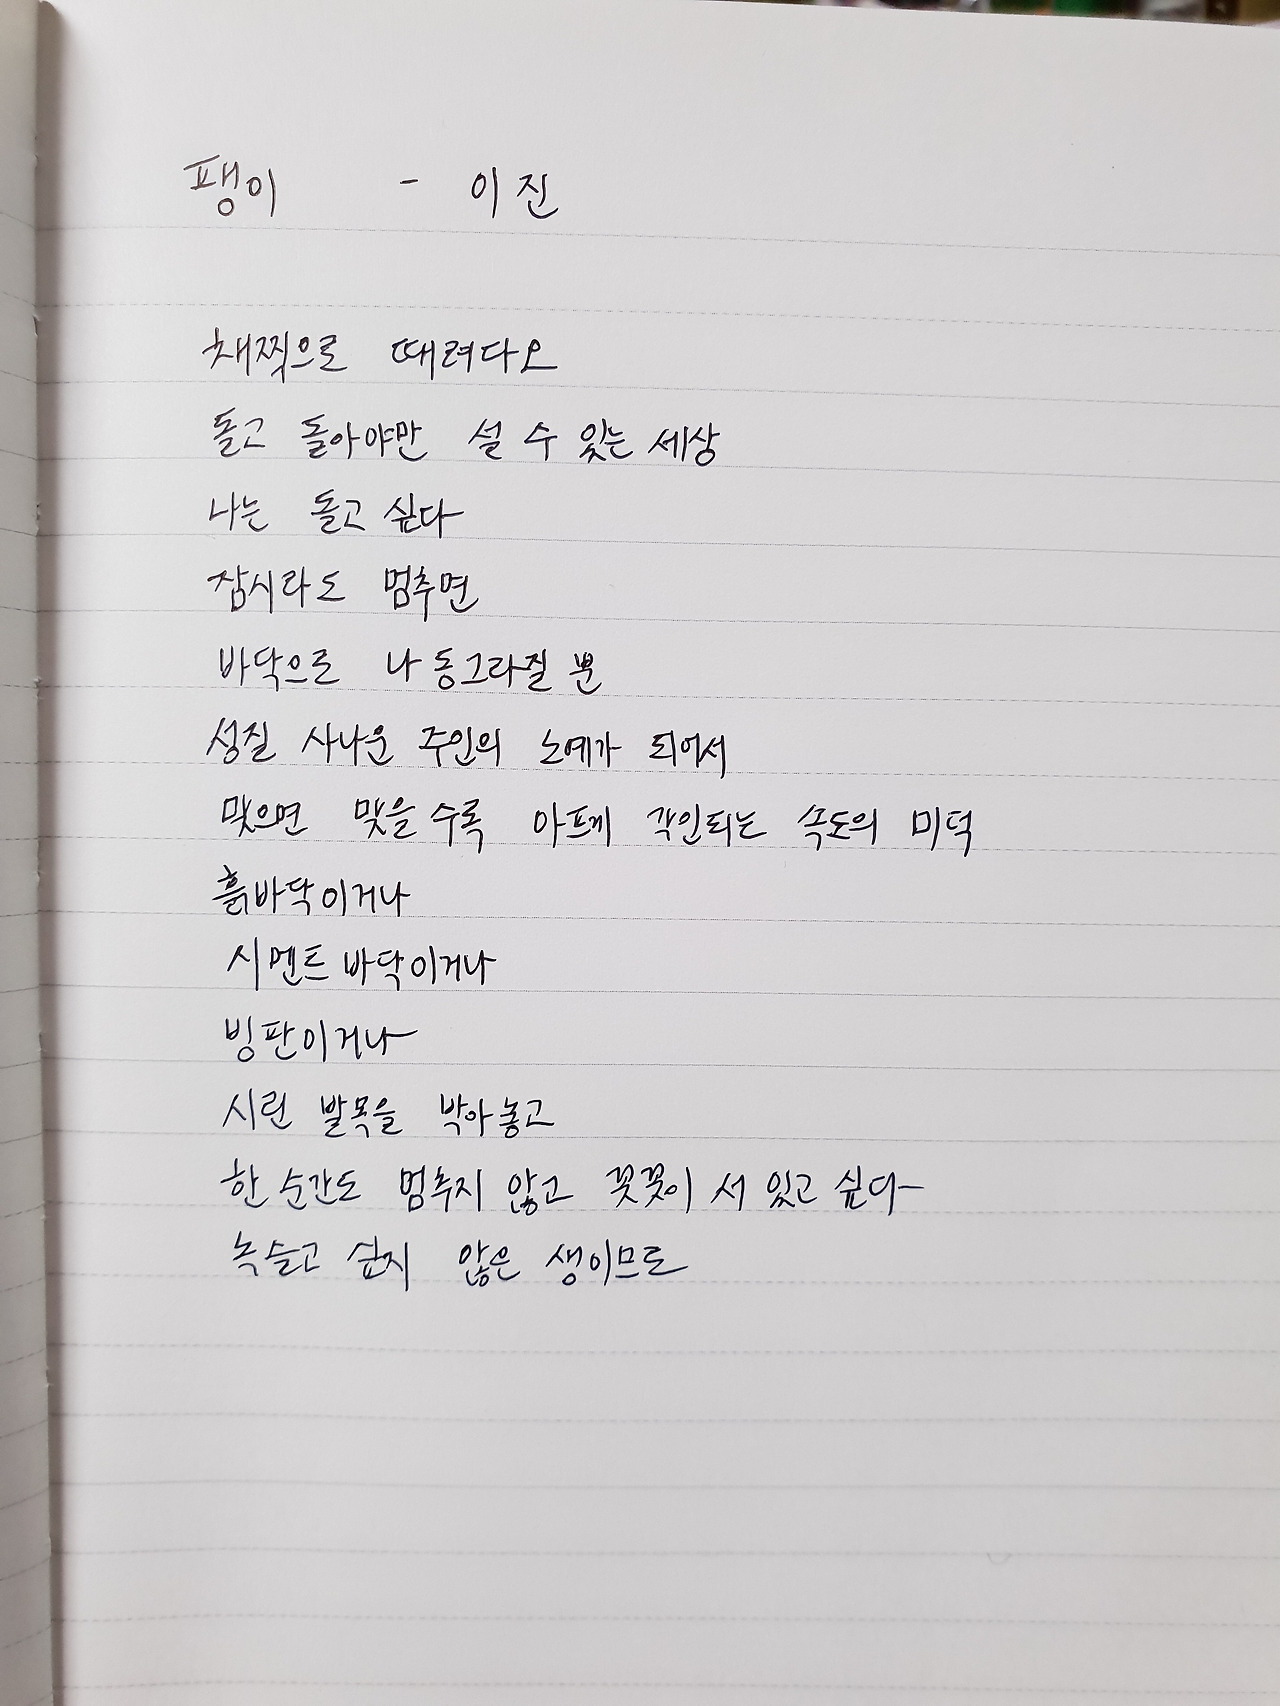 팽이 - 이진
채찍으로 때려다오
돌고 돌아야만 설 수 있는 세상
나는 돌고 싶다
잠시라도 멈추면
바닥으로 나동그라질 뿐
성질 사나운 주인의 노예가 되어서
맞으면 맞을수록 아프게 각인되는 속도의 미덕
흙바닥이거나
시멘트 바닥이거나
빙판이거나
시린 발목을 박아놓고
한 순간도 멈추지 않고 꼿꼿이 서 있고 싶다
녹슬고 싶지 않은 생이므로